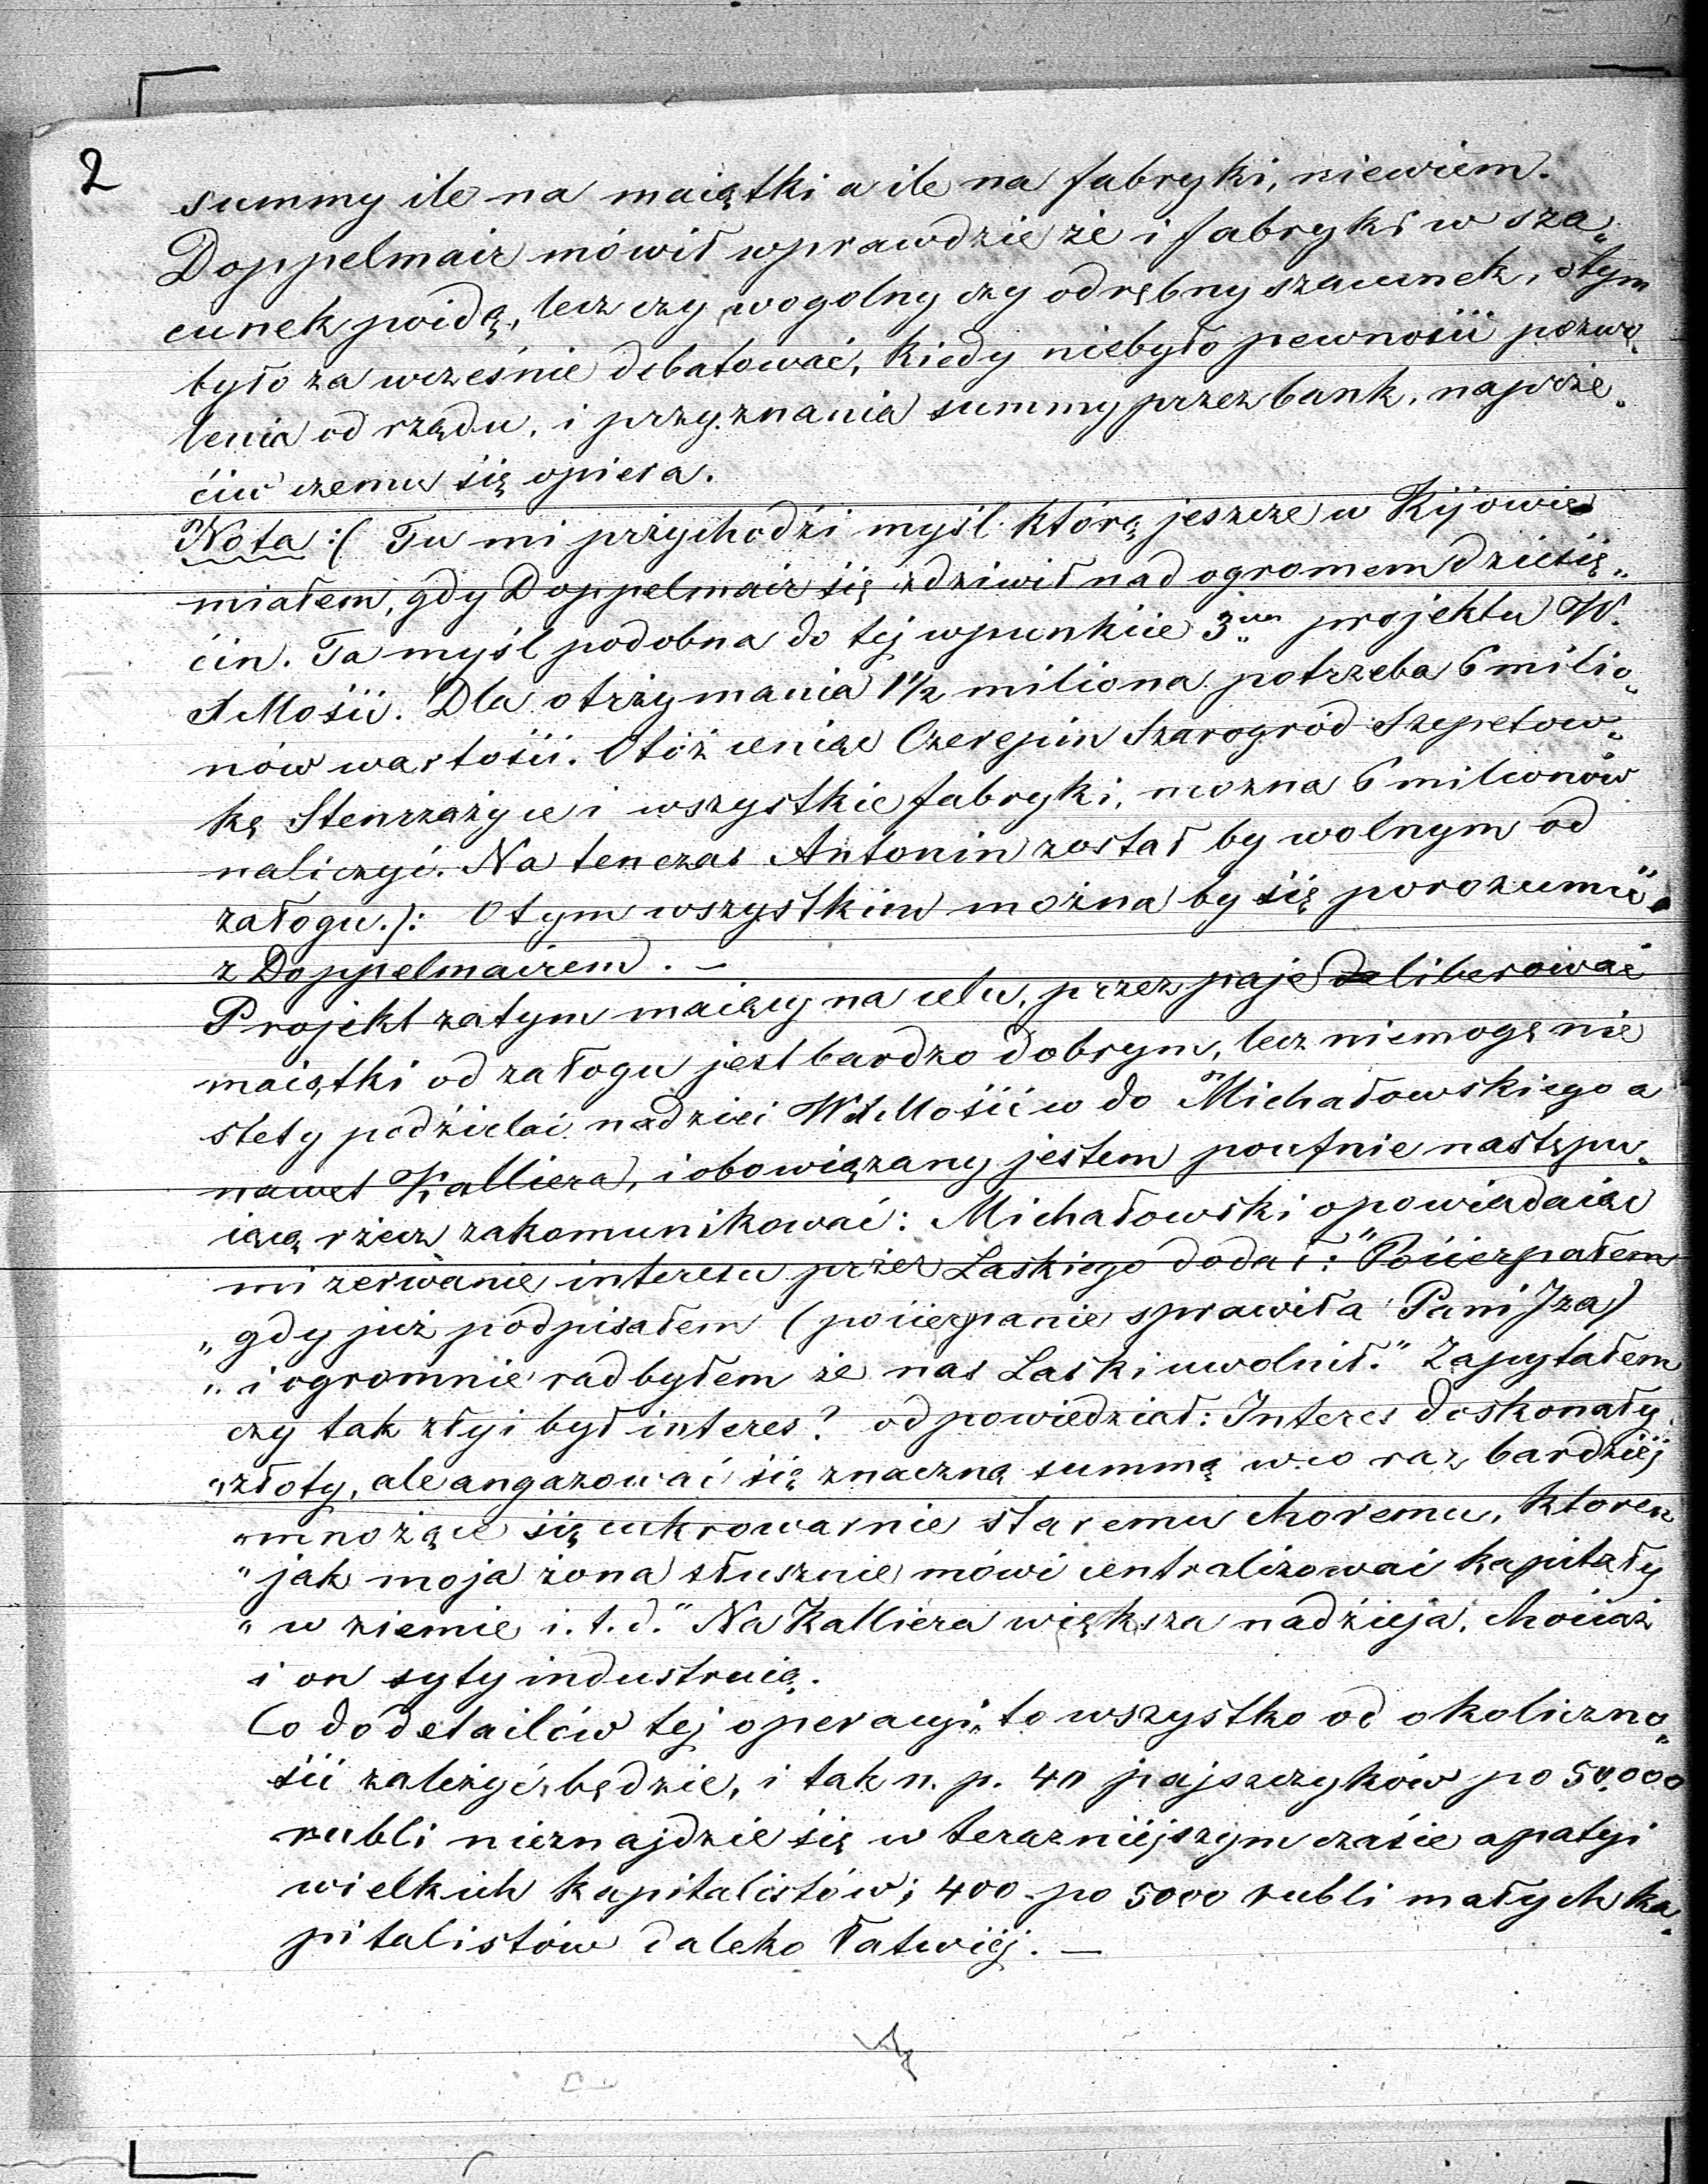 2
summy ile na maiątki a ile na fabryki, niewiem.
Doppelmair mówił wprawdzie że i fabryki w sza„
cunek poidą, lecz czy wogolny czy odrębny szacunek, otym
było za wcześnie debatować, kiedy niebyło pewności pozwo„
lenia od rządu, i przyznania summy przez bank, naprze„
ciw czemu się opiera.
Nota :( Tu mi przychodzi myśl którą jeszcze w Kijowie
miałem, gdy Doppelmair się zdziwił nad ogromem dziesię„
cin. Ta myśl podobna do tej wpunkcie 3im projektu W.
JMości. Dla otrzymania 1 1/2 miliona potrzeba 6 milio„
nów wartości. Otóż ceniąc Czerepin Szarogród Szepetow„
kę Stenrzażyce i wszystkie fabryki, można 6 milionów
naliczyć. Na tenczas Antonin został by wolnym od
załogu.): O tym wszystkim można by się porozumić
z Doppelmairem. –
Projekt zatym maiący na celu, przez paje deliberować
maiątki od załogu jest bardzo dobrym, lecz niemogę nie
stety podzielać nadziei WJMości w do Michałowskiego a
nawet Kalliera, i obowiązany jestem poufnie następu„
iącą rzecz zakomunikować: Michałowski opowiadaiąc
mi zerwanie interesu przez Laskiego dodał: "Pocierpałem
„ gdy już podpisałem (pocierpanie sprawiła Pani Iza)
„ i ogromnie rad byłem że nas Laski uwolnił." Zapytałem
czy tak złyi był interes? odpowiedział: Interes doskonały
„złoty, ale angazować się znaczną summą w co raz bardziej
„mnożące się cukrowarnie staremu choremu, ktoren
„jak moja żona słusznie mówi centralizować kapitały
„ w ziemie i. t. d." Na Kalliera większa nadzieja, chociaż
i on syty industruią.
Co do detailów tej operacyi, to wszystko od okoliczno„
ści zależyć będzie, i tak n. p. 40 pajszczyków po 50.000
rubli nieznajdzie się w terazniejszym czasie apatyi
wielkich kapitalistów; 400 po 5000 rubli małych ka„
pitalistów daleko łatwiej. —